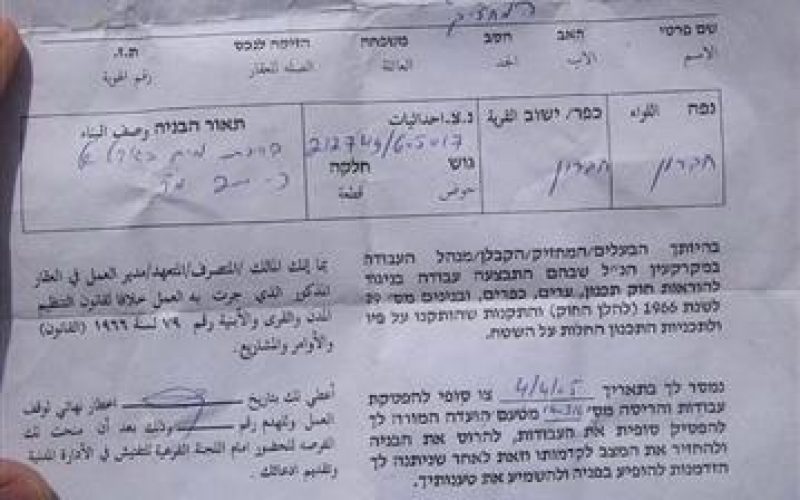 המחזיק
שם פרטי האב הסב משפחה הזיקה לנכס ת.ז.
الاسم الأب الجد العائلة الصلة للعقار رقم الهوية
נפה اللواء כפר/ ישוב القرية נ.צ. احداثيات תאור הבניה وصف البناء
212749/605017
חברון חברון גוש חלקה
حوض قطعة
בהיותך הבעלים/המחזיק/הקבלן/מנהל העבודה
במקרקעין הנ"ל שבהם התבצעה עבודה בניגוד
להוראות חוק תכנון, ערים, כפרים, ובנינים מס' 79
לשנת 1966 (להלן החוק) והתקנות שהותקנו על פיו
ולתכניות התכנון החלות על השטח.
بما إنك المالك/المتصرف/المتعهد/مدير العمل في العقار
المذكور الذي جرت به العمل خلافا لقانون التنظيم
المدن والقرى والأبنية رقم ٧٩ لسنة ١٩٦٦ (القانون)
والأوامر والمشاريع.
נמסר לך בתאריך 4/4/05 צו סופי להפסקת
עבודות והריסה מס' מטעם הועדה המורה לך
להפסיק סופית את העבודות, להרוס את הבניה
ולהחזיר את המצב לקדמותו וזאת לאחר שניתנה לך
הזדמנות להופיע בפניה ולהשמיע את טענותיך.
أعطي لك بتاريخ اخطار نهائي لوقف
العمل والهدم رقم وذلك بعد أن منحت لك
الفرصة للحضور امام اللجنة الفرعية للتفتيش في الأدارة المدنية
وتقديم ادعائك.